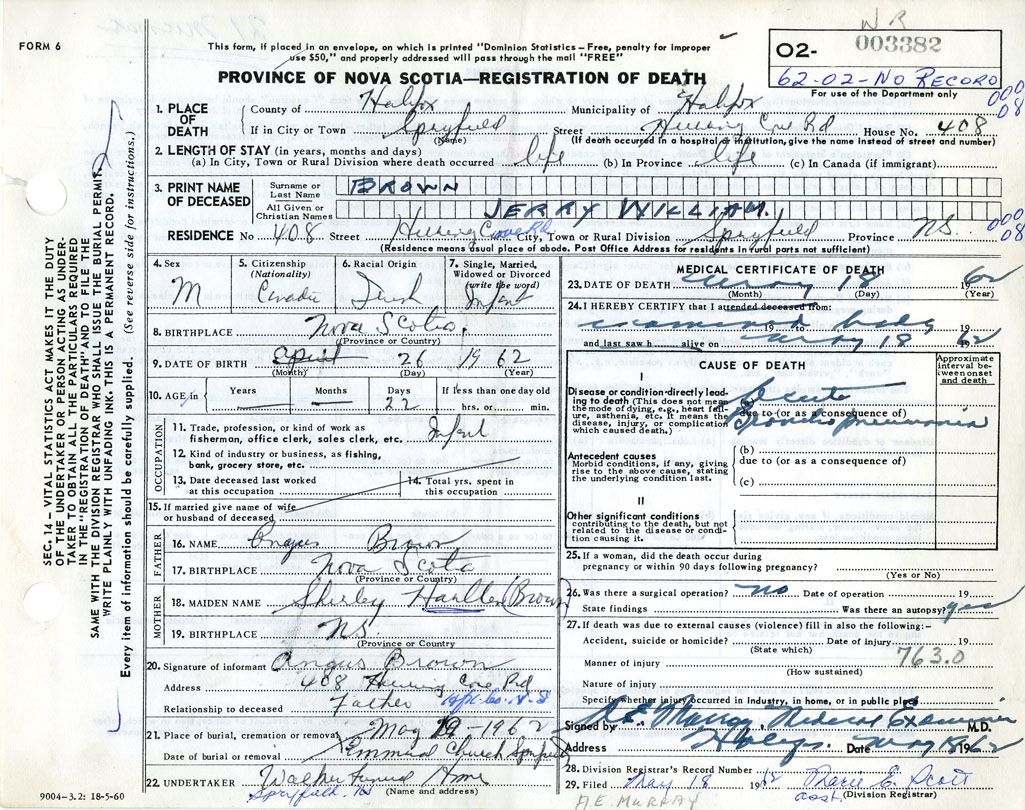 W R
FORM 6
This form, if placed in an envelope, on which is printed "Dominion Statistics – Free, penalty for improper
use $50," and properly addressed will pass through the mail "FREE"
O2- 003382
62-02-No Record
For use of the Department only
000
08
PROVINCE OF NOVA SCOTIA—REGISTRATION OF DEATH
1. PLACE OF DEATH County of Halifax Municipality of Halifax
If in City or Town Spryfield Street Herring Cove Rd House No. 408
(Name) (If death occurred in a hospital or institution, give the name instead of street and number)
2. LENGTH OF STAY (in years, months and days)
(a) In City, Town or Rural Division where death occurred life (b) In Province life (c) In Canada (if immigrant)
3. PRINT NAME OF DECEASED Surname or Last Name BROWN
All Given or Christian Names JERRY WILLIAM.
RESIDENCE No. 408 Street Herring Cove Rd City, Town or Rural Division Spryfield Province NS
000
08
(Residence means usual place of abode. Post Office Address for residents in rural parts not sufficient)
4. Sex M
5. Citizenship (Nationality)
6. Racial Origin
7. Single, Married, Widowed or Divorced (write the word) Infant
8. BIRTHPLACE Nova Scotia.
(Province or Country)
9. DATE OF BIRTH April 26 1962
(Month) (Day) (Year)
10. AGE in Years Months Days 22 If less than one day old hrs. or min.
OCCUPATION
11. Trade, profession, or kind of work as fisherman, office clerk, sales clerk, etc. Infant
12. Kind of industry or business, as fishing, bank, grocery store, etc.
13. Date deceased last worked at this occupation
14. Total yrs. spent in this occupation
15. If married give name of wife or husband of deceased
FATHER
16. NAME Angus Brown
17. BIRTHPLACE Nova Scotia
(Province or Country)
MOTHER
18. MAIDEN NAME Shirley (Brown)
19. BIRTHPLACE NS.
(Province or Country)
20. Signature of informant Angus Brown
Address 408 Herring Cove Rd
Relationship to deceased Father Hfx. Co. N.S
21. Place of burial, cremation or removal May 19-1962
Date of burial or removal Emmanuel Church Spryfield
22. UNDERTAKER Walker Funeral Home
Spryfield. NS (Name and address)
9004-3.2: 18-5-60
MEDICAL CERTIFICATE OF DEATH
23. DATE OF DEATH May 18 1962
(Month) (Day) (Year)
24. I HEREBY CERTIFY that I attended deceased from:
examined body 19 19
and last saw h alive on May 18 1962
CAUSE OF DEATH
Approximate interval between onset and death
I
Disease or condition directly leading to death (This does not mean the mode of dying, e.g., heart failure, asthenia, etc. It means the disease, injury, or complication which caused death.)
(a) Acute
due to (or as a consequence of)
Broncho pneumonia
Antecedent causes
Morbid conditions, if any, giving rise to the above cause, stating the underlying condition last.
(b)
due to (or as a consequence of)
(c)
II
Other significant conditions
contributing to the death, but not related to the disease or condition causing it.
25. If a woman, did the death occur during pregnancy or within 90 days following pregnancy?
(Yes or No)
26. Was there a surgical operation? no Date of operation 19
State findings Was there an autopsy? yes
27. If death was due to external causes (violence) fill in also the following:–
Accident, suicide or homicide? Date of injury 19
(State which)
763.0
Manner of injury
(How sustained)
Nature of injury
Specify whether injury occurred in Industry, in home, or in public place
Signed by A.E. Murray Medical Examiner M.D.
Address Halifax. Date May 18 1962
28. Division Registrar's Record Number
29. Filed May 18 1962 Marie E. Scott
asst. (Division Registrar)
A.E. MURRAY
SEC. 14 – VITAL STATISTICS ACT MAKES IT THE DUTY
OF THE UNDERTAKER OR PERSON ACTING AS UNDER-
TAKER TO OBTAIN ALL THE PARTICULARS REQUIRED
IN THE "REGISTRATION OF DEATH" AND TO FILE THE
SAME WITH THE DIVISION REGISTRAR WHO SHALL ISSUE THE BURIAL PERMIT
WRITE PLAINLY WITH UNFADING INK. THIS IS A PERMANENT RECORD.
Every item of information should be carefully supplied. (See reverse side for instructions.)